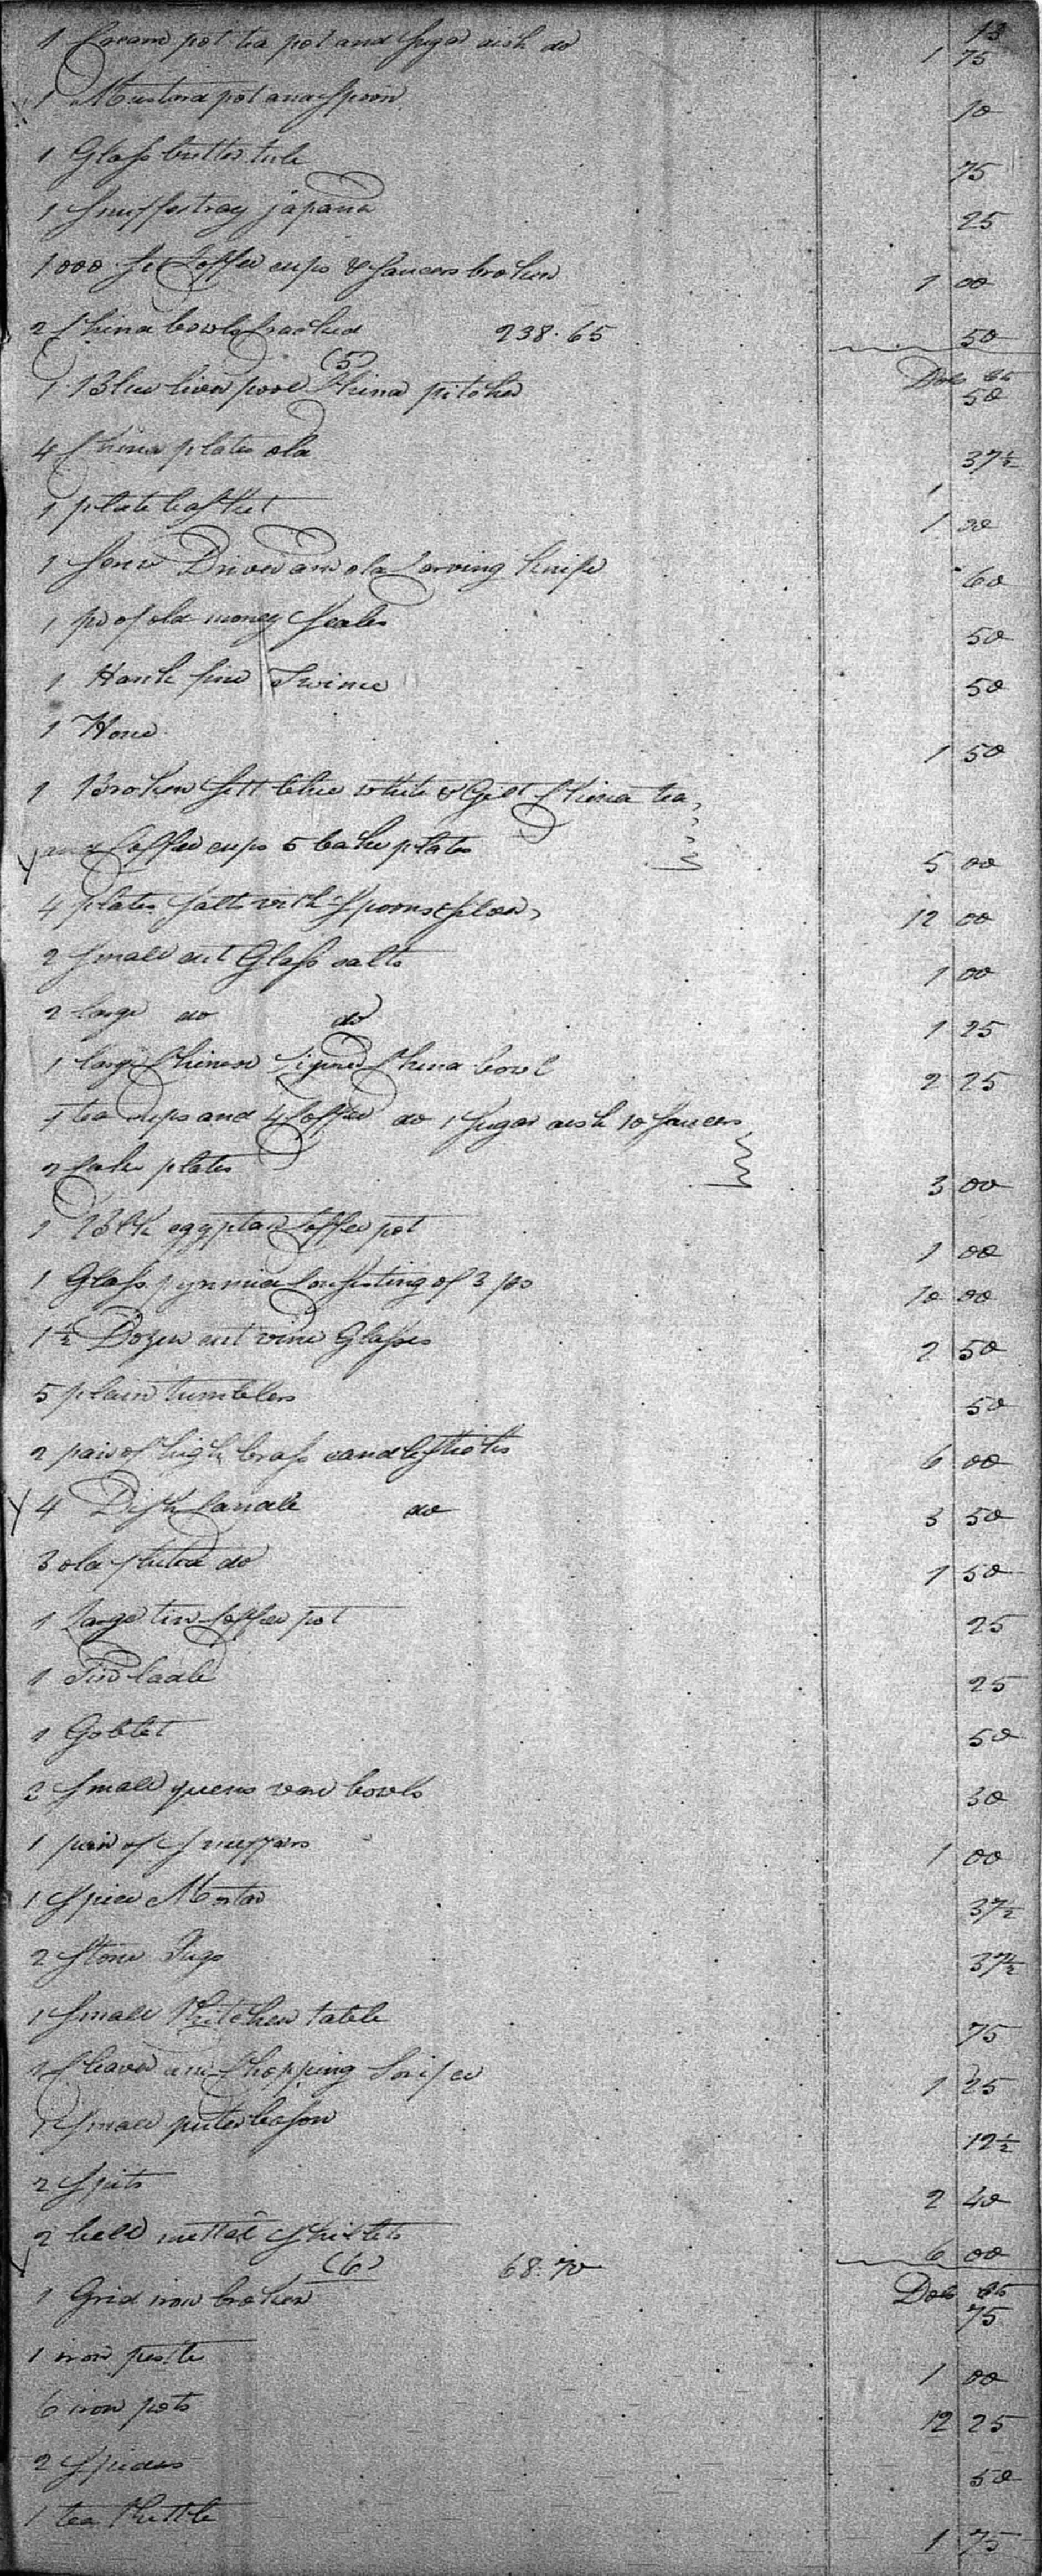 13
1 Cream pot tea pot and Sugar dish do 1 75
1 Mustard pot and Spoon 10
1 Glass butter tub 75
1 Snuffestray japand 25
1 odd Se Coffee cups & Saucers broken 1 00
2 China bowls Cracked 238.65 50
(5) Dols cts
1 Blue liverpool China pitcher 50
4 China plates old 37½
1 plate basket 1 00
1 Screw Driver and old Carving knife 60
1 pr of old money Scales 50
1 Hank fine Twine 50
1 Hone 1 50
1 Broken Sett blue white & Gilt China tea
and Coffee cups 5 bake plates 5 00
4 plated Salts with Spoons Silver 12 00
2 Small cut Glass salts 1 00
2 large do do 1 25
1 large Chinese China bowl 2 25
tea cups and 4 Coffee do 1 Sugar dish 10 Saucers
2 Cake plates 3 00
1 Blk egyptan Coffee pot 1 00
1 Glass pyrmid Consisting of 3 ps 10 00
1½ Dozen cut wine Glasses 2 50
5 plain tumblers 50
2 pair of high brass candlesticks 6 00
4 Dish Candle do 3 50
3 old pluted do 1 50
1 Large tin Coffee pot 25
1 Tin ladle 25
1 Goblet 50
3 Small queens ware bowls 30
1 pair of Snuffars 1 00
1 Spice Mortar 37½
2 Stone Jugs 37½
1 Small Kitchen table 75
1 Cleaver and Chopping knife 1 25
1 Small puter bason 12½
2 Spits 2 40
2 bell mettal Skillets 6 00
(6) 68.70 Dols cts
1 Grid iron broken 75
1 iron pestle 1 00
6 iron pots 12 25
2 Spiders 50
1 tea Kettle 1 75